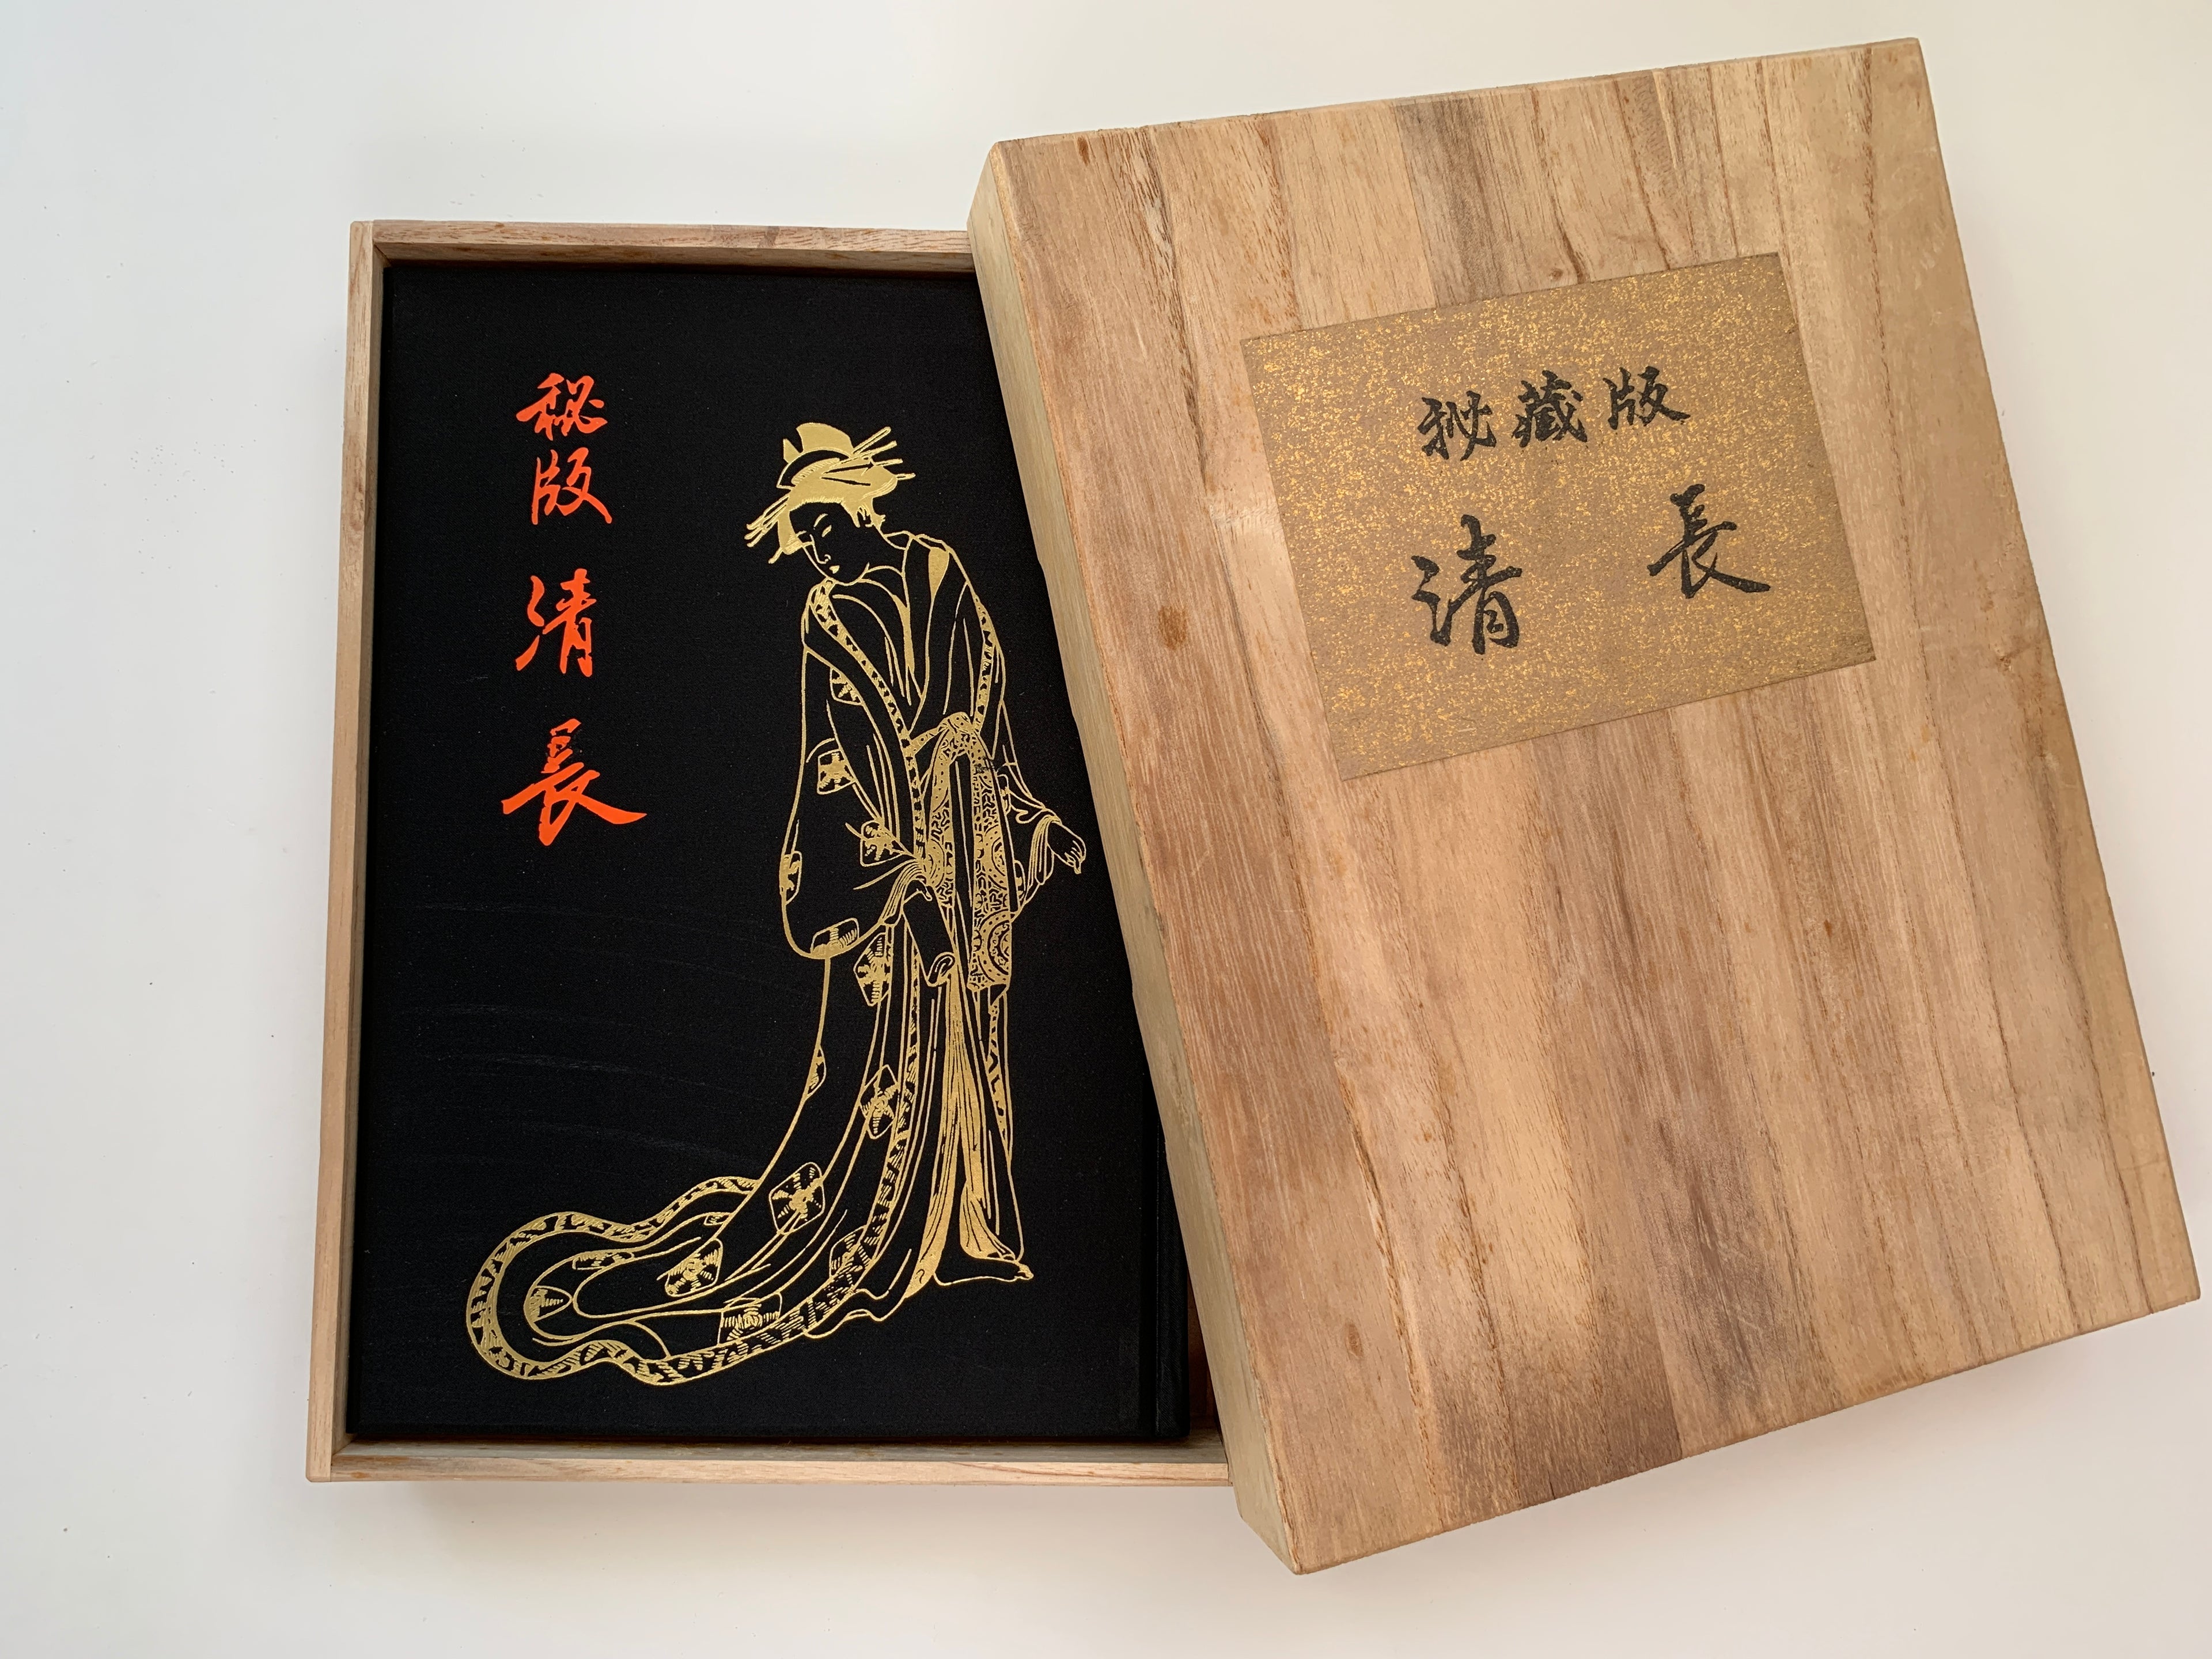 秘版 清長
秘蔵版
清長